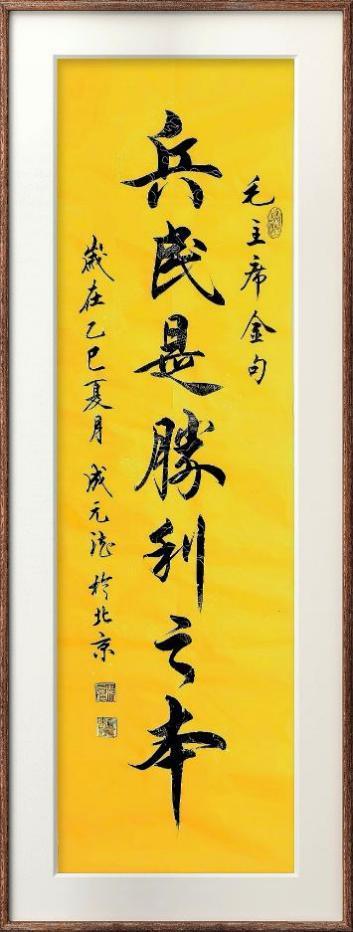 毛主席金句
兵民是勝利之本
歲在乙巳夏月 成元法於北京